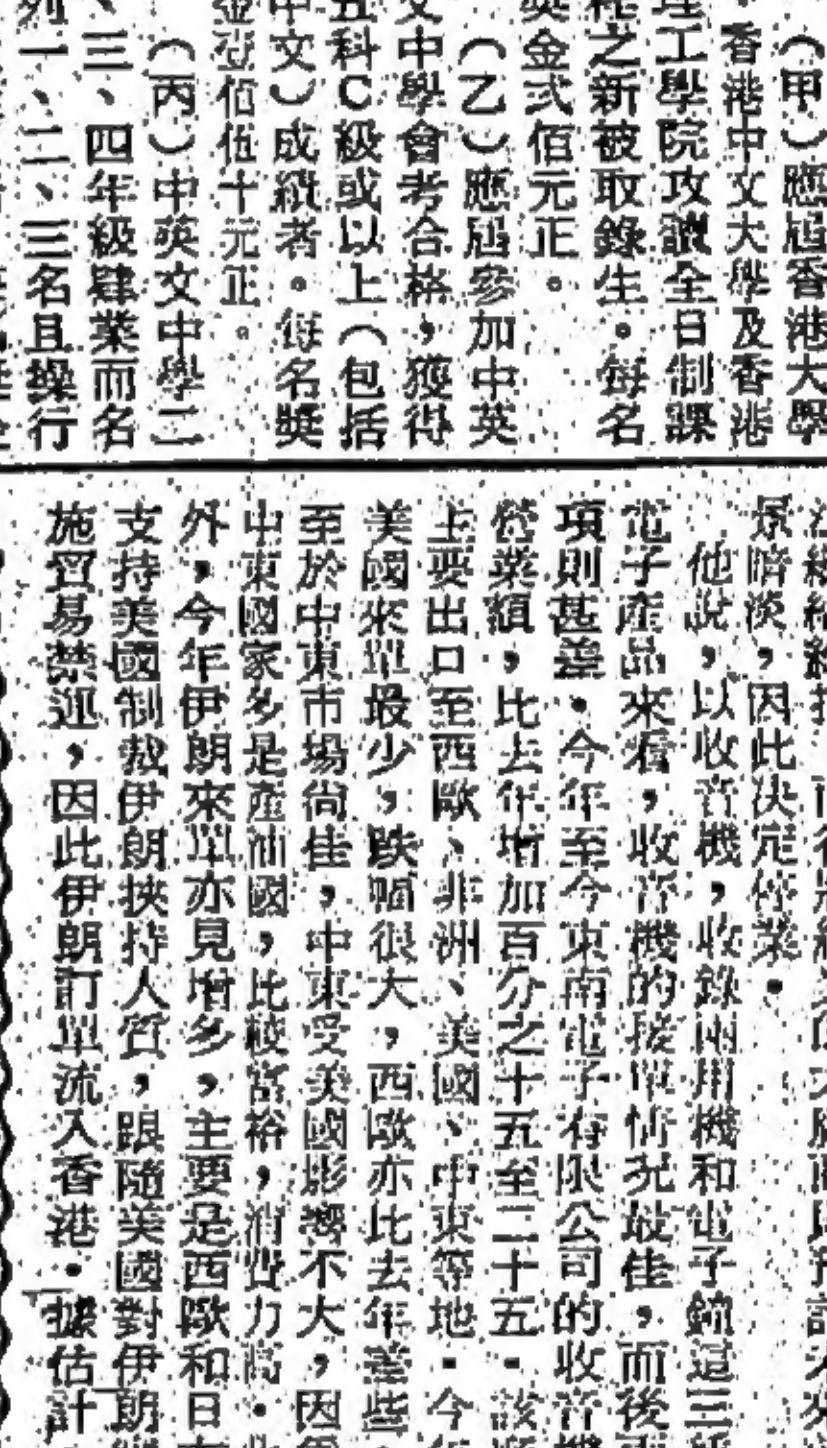 （甲）應屆香港大學
、香港中文大學及香港
理工學院攻讀全日制課
程之新被取錄生。每名
獎金弍佰元正。
（乙）應屆參加中英
文中學會考合格，獲得
五科C級或以上（包括
中文）成績者。每名獎
金壹佰伍十元正。
（丙）中英文中學二
、三、四年級肄業而名
列一、二、三名且操行
景暗淡，因此決定停業。
他說，以收音機，收錄兩用機和電子鐘這三
電子產品來看，收音機的接單情況最佳，而後
項則甚差。今年至今東南電子有限公司的收音機
營業額，比去年增加百分之十五至二十五。該
主要出口至西歐、非洲、美國、中東等地。今
美國來單最少，跌幅很大，西歐亦比去年差些
至於中東市場尚佳，中東受美國影響不大，因
中東國家多是產油國，比較富裕，消費力高。
外，今年伊朗來單亦見增多，主要是西歐和日
支持美國制裁伊朗挾持人質，跟隨美國對伊朗
施貿易禁運，因此伊朗訂單流入香港。據估計